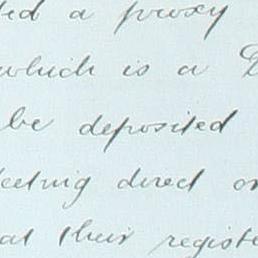 ted a proxy
which is a D
be deposited
eeting direct or
at their registe